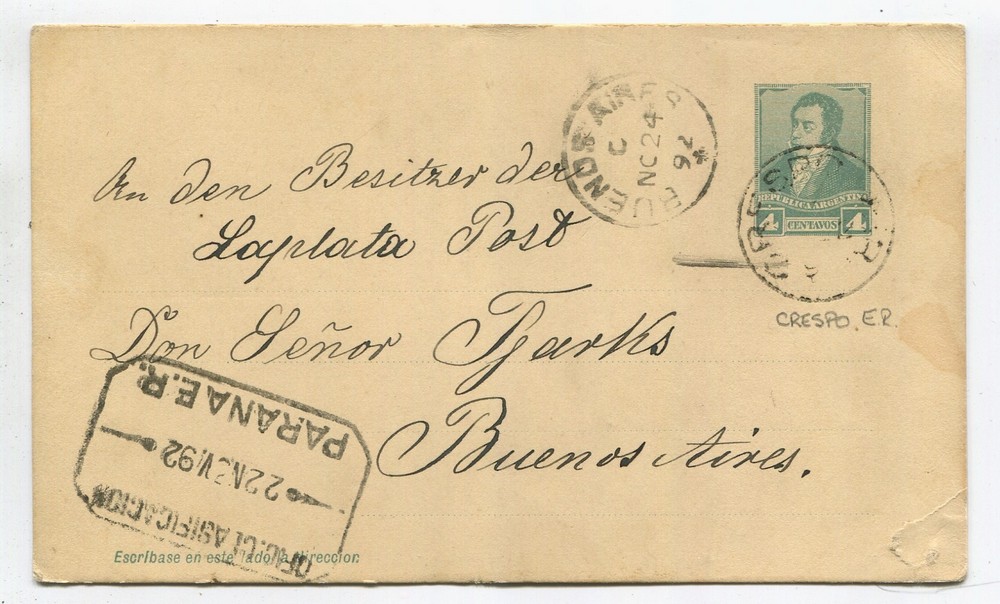 BUENOS AIRES
C
NC 24
92
REPUBLICA ARGENTINA
4 CENTAVOS 4
CRESPO. E.R.
An den Besitzer der
Laplata Post
Don Señor Tjarks
Buenos Aires.
PARANA E.R.
22 NOV 92
OFIC. CLASIFICACION
Escríbase en este lado la direccion.